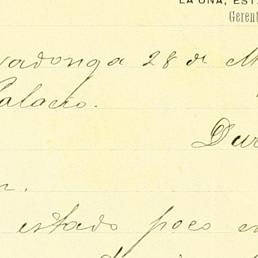 LA UÑA, EST
Gerent
vadonga 28 de M
Palacio.
Dur
n.
estado poco en